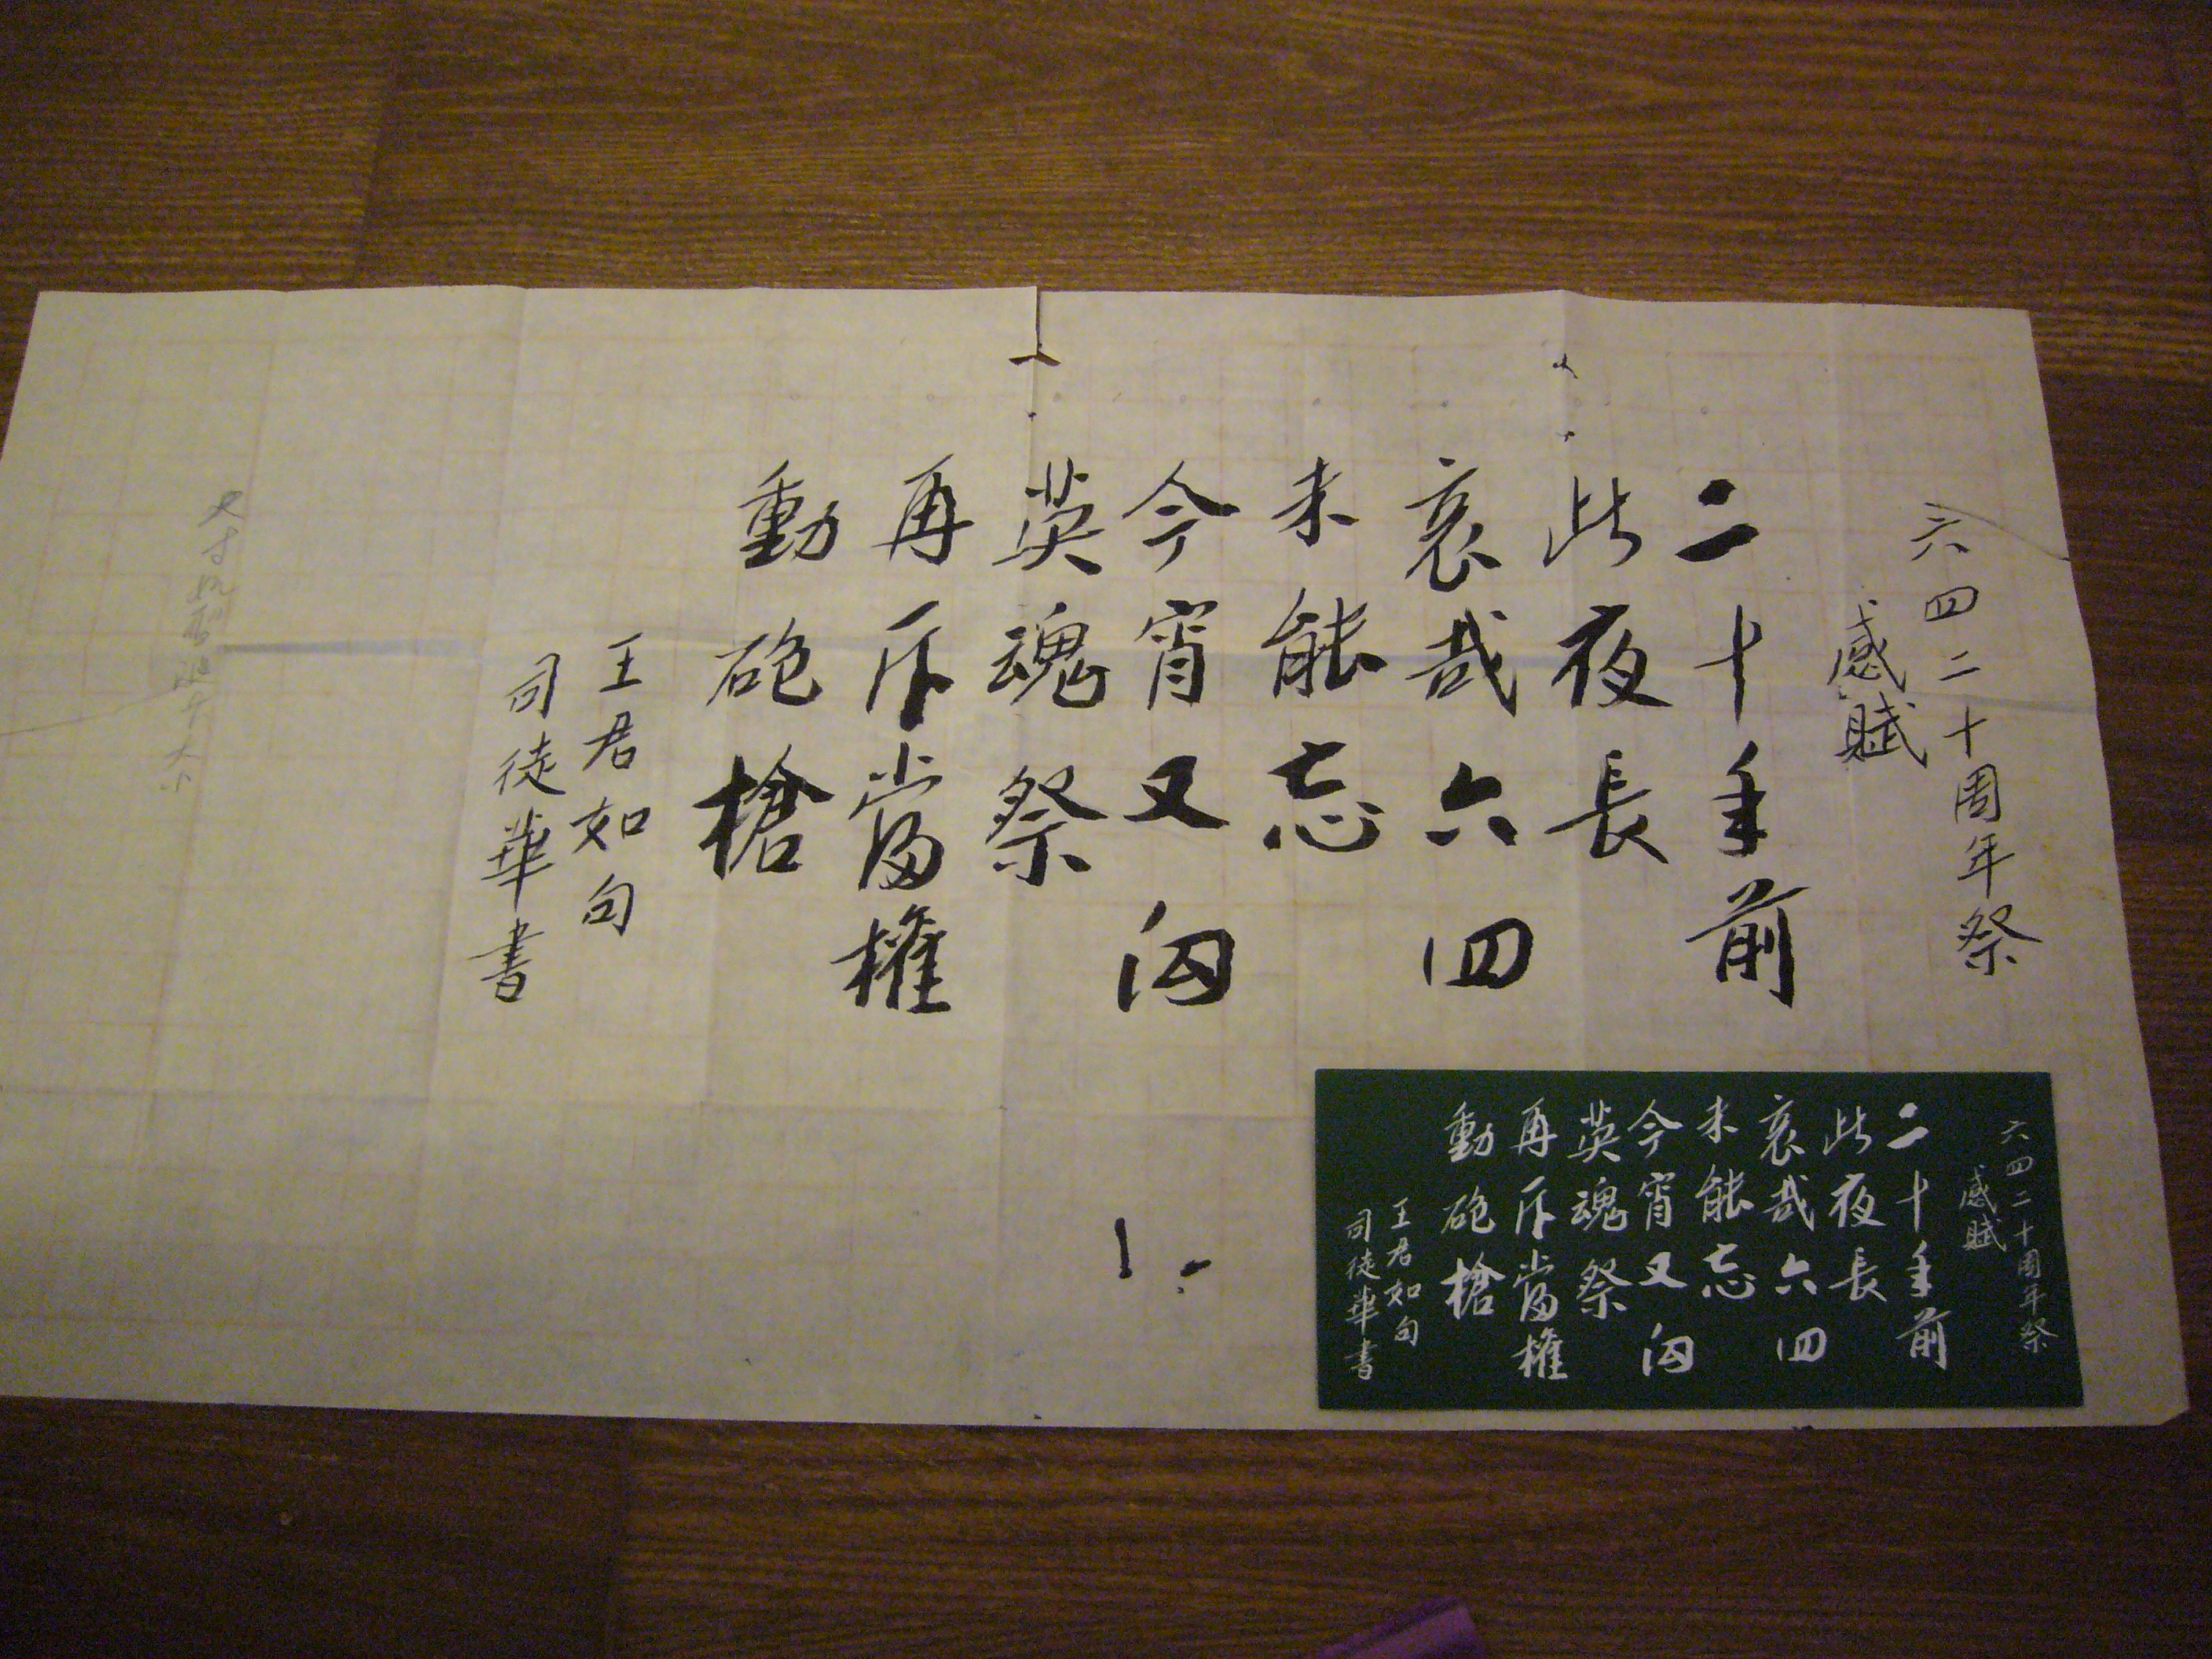 六四二十周年祭
感賦
二十年前
此夜長
哀哉六四
未能忘
今宵又向
英魂祭
再斥當權
動砲槍
王君如句
司徒華書
六四二十周年祭
感賦
二十年前
此夜長
哀哉六四
未能忘
今宵又向
英魂祭
再斥當權
動砲槍
王君如句
司徒華書